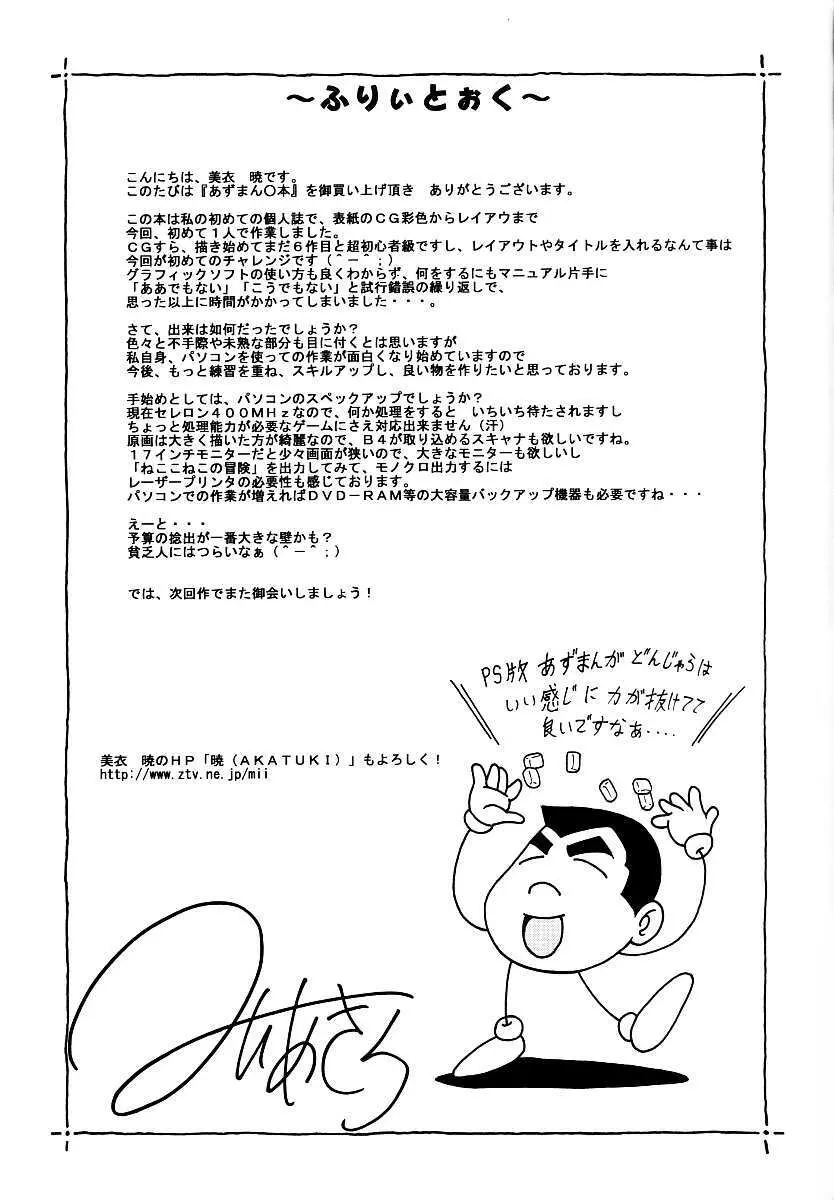 ～ふりぃとぉく～
こんにちは、美衣　暁です。
このたびは『あずまん〇本』を御買い上げ頂き　ありがとうございます。
この本は私の初めての個人誌で、表紙のＣＧ彩色からレイアウまで
今回、初めて１人で作業しました。
ＣＧすら、描き始めてまだ６作目と超初心者級ですし、レイアウトやタイトルを入れるなんて事は
今回が初めてのチャレンジです（＾－＾；）
グラフィックソフトの使い方も良くわからず、何をするにもマニュアル片手に
「ああでもない」「こうでもない」と試行錯誤の繰り返しで、
思った以上に時間がかかってしまいました・・・。
さて、出来は如何だったでしょうか？
色々と不手際や未熟な部分も目に付くとは思いますが
私自身、パソコンを使っての作業が面白くなり始めていますので
今後、もっと練習を重ね、スキルアップし、良い物を作りたいと思っております。
手始めとしては、パソコンのスペックアップでしょうか？
現在セレロン４００ＭＨｚなので、何か処理をすると　いちいち待たされますし
ちょっと処理能力が必要なゲームにさえ対応出来ません（汗）
原画は大きく描いた方が綺麗なので、Ｂ４が取り込めるスキャナも欲しいですね。
１７インチモニターだと少々画面が狭いので、大きなモニターも欲しいし
「ねここねこの冒険」を出力してみて、モノクロ出力するには
レーザープリンタの必要性も感じております。
パソコンでの作業が増えればＤＶＤ－ＲＡＭ等の大容量バックアップ機器も必要ですね・・・
えーと・・・
予算の捻出が一番大きな壁かも？
貧乏人にはつらいなぁ（＾－＾；）
では、次回作でまた御会いしましょう！
PS版 あずまんが どんじゃらは
いい感じに 力が抜けてて
良いですなぁ....
美衣　暁のＨＰ「暁（ＡＫＡＴＵＫＩ）」もよろしく！
http://www.ztv.ne.jp/mii
みぃあきら